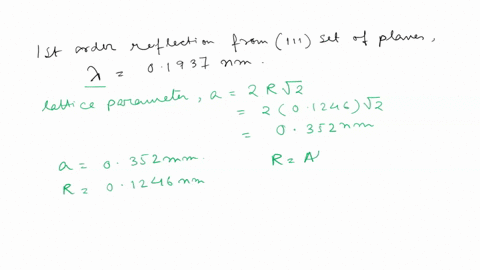 1st order reflection from (111) set of planes,
λ = 0.1937 nm.
lattice parameter, a = 2 R √2
= 2 (0.1246) √2
= 0.352 nm
a = 0.352 nm. R = A
R = 0.1246 nm